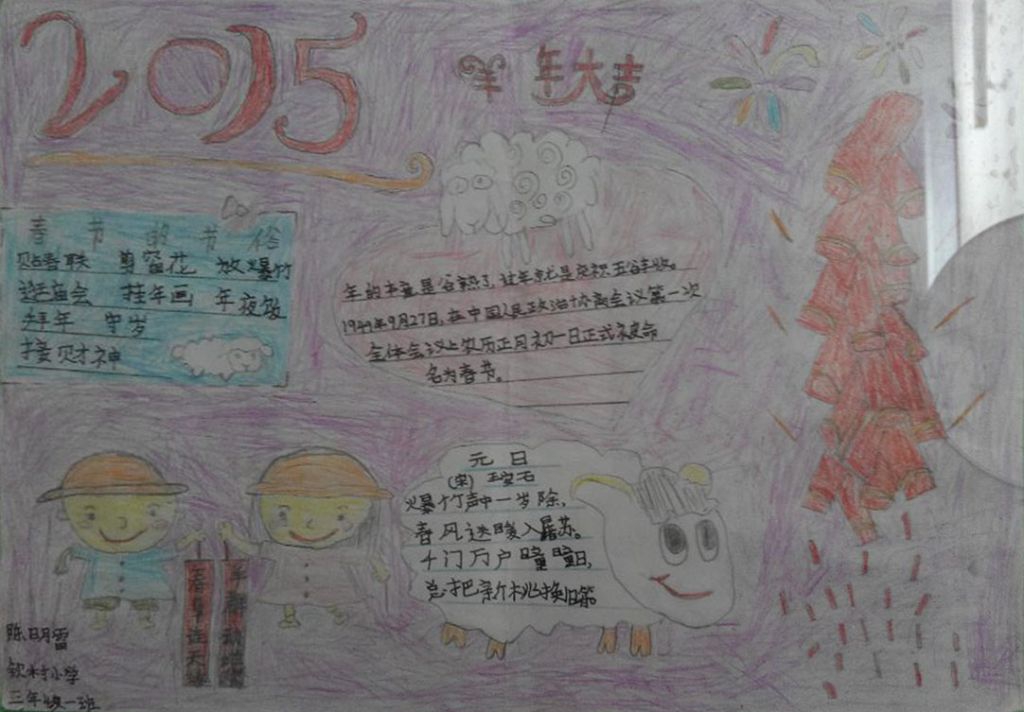 2015
羊年大吉
春节的节俗
贴春联 剪窗花 放爆竹
逛庙会 挂年画 年夜饭
拜年 守岁
接财神
年的本意是谷熟了,过年就是庆祝五谷丰收。
1949年9月27日,在中国人民政治协商会议第一次
全体会议上农历正月初一日正式被命
名为春节。
元日
(宋) 王安石
爆竹声中一岁除,
春风送暖入屠苏。
千门万户瞳瞳日,
总把新桃换旧符。
陈明雪
钦村小学
三年级一班